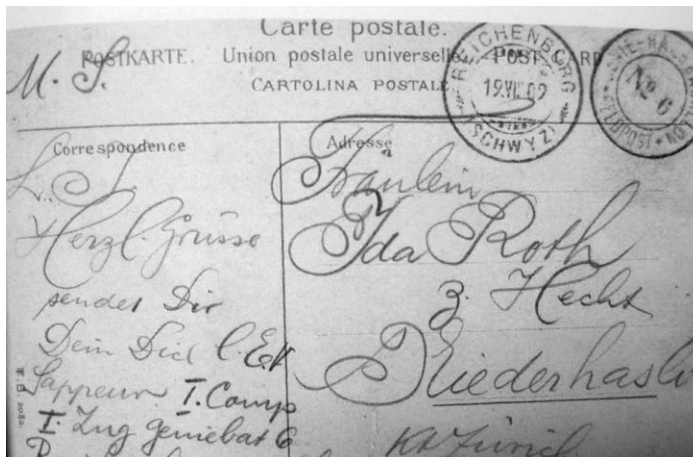 Carte postale.
POSTKARTE. Union postale universelle. POST CARD
CARTOLINA POSTALE
M. S.
REICHENBURG
19.VII.09
(SCHWYZ)
No 6
FELDPOST
Correspondence
L. I.
Herzl. Grüsse
sendet Dir
Dein Dich l.
Sappeur I. Comp
I. Zug Geniebat 6
Adresse
Fräulein
Ida Roth
z. Hecht
Niederhasli
Kt Zürich